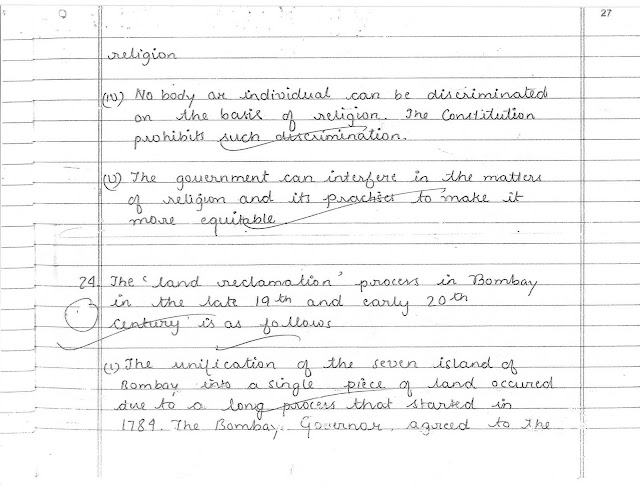 27
religion
(iv) No body or individual can be discriminated
on the basis of religion. The Constitution
prohibits such discrimination.
(v) The government can interfere in the matters
of religion and its practises to make it
more equitable.
24. The 'land reclamation' process in Bombay
in the late 19th and early 20th
century is as follows
(i) The unification of the seven island of
Bombay into a single piece of land occured
due to a long process that started in
1784. The Bombay Governor, agreed to the